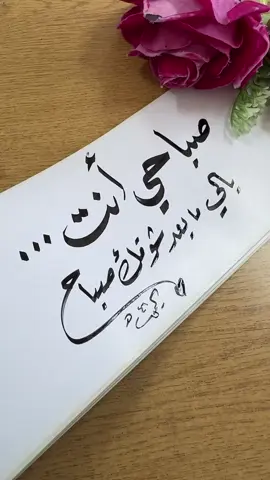 صباحي أنت...
يالي ما بعد شوفتك صباح